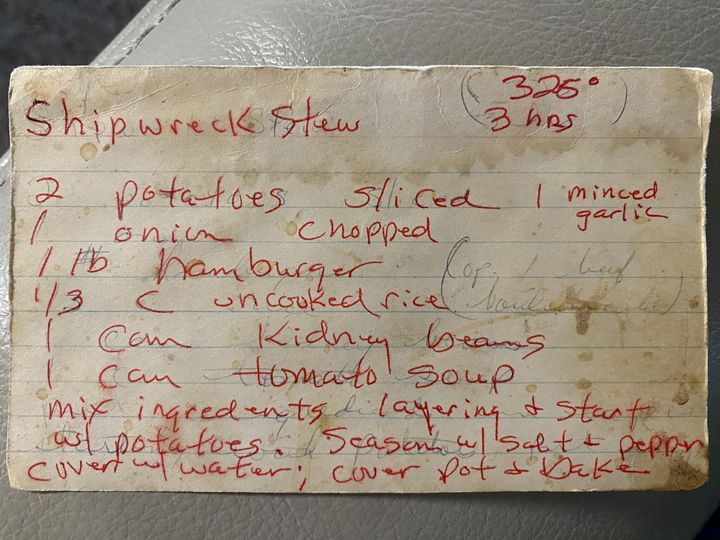 Shipwreck Stew
(325°
3 hrs)
2 potatoes sliced 1 minced garlic
1 onion chopped
1 lb hamburger
1/3 C uncooked rice
1 can Kidney beans
1 can tomato soup
mix ingredents layering & start
w/ potatoes. Season w/ salt & pepper
cover w/ water; cover pot & bake